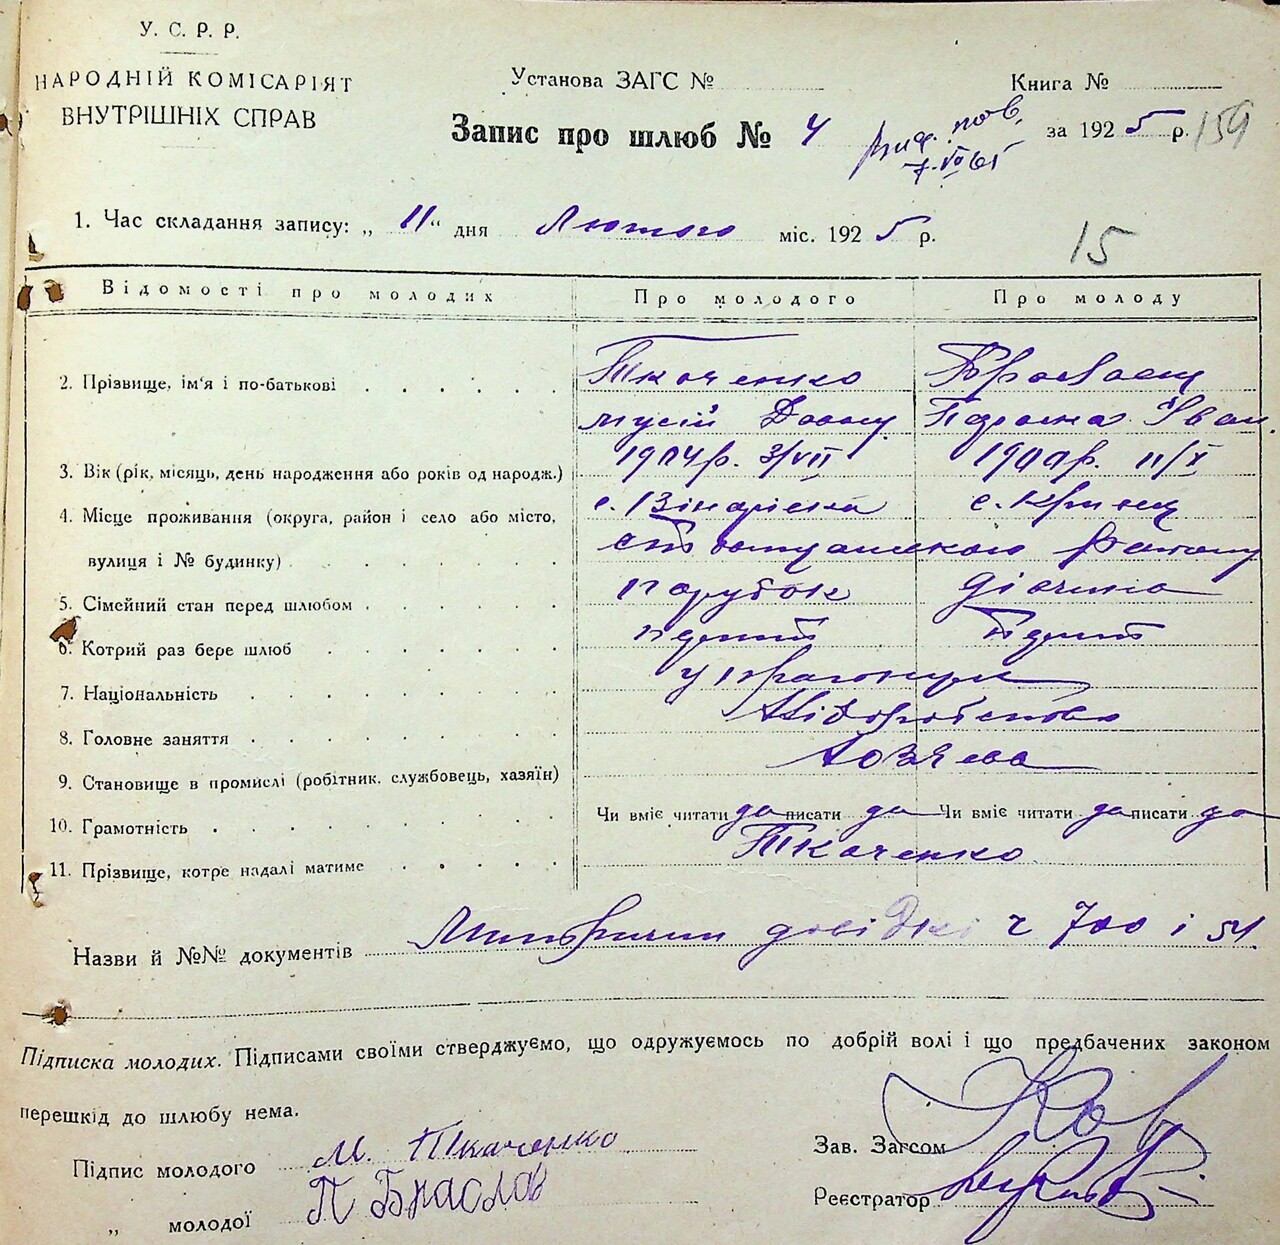 У. С. Р. Р.
НАРОДНІЙ КОМІСАРІЯТ
ВНУТРІШНІХ СПРАВ
Установа ЗАГС №
Книга №
Запис про шлюб № 4
пов.
7.VII 61
за 1925 р.
159
1. Час складання запису: „ 11 “ дня Лютого міс. 1925 р.
15
Відомості про молодих Про молодого Про молоду
2. Прізвище, ім'я і по-батькові Ткаченко
Мусій Іван.
3. Вік (рік, місяць, день народження або років од народж.) 1904р. 3/VII
4. Місце проживання (округа, район і село або місто, с. с.
вулиця і № будинку) району
5. Сімейний стан перед шлюбом парубок дівчина
6. Котрий раз бере шлюб перший перший
7. Національність
8. Головне заняття Хліборобство
9. Становище в промислі (робітник. службовець, хазяїн) Хозяева
10. Грамотність Чи вміє читати да писати да Чи вміє читати да писати да
11. Прізвище, котре надалі матиме Ткаченко
Назви й №№ документів довідкі ч 700 і 51.
Підписка молодих. Підписами своїми стверджуємо, що одружуємось по добрій волі і що предбачених законом
перешкід до шлюбу нема.
Підпис молодого М. Ткаченко
Зав. Загсом
„ молодої П Браслав
Реєстратор